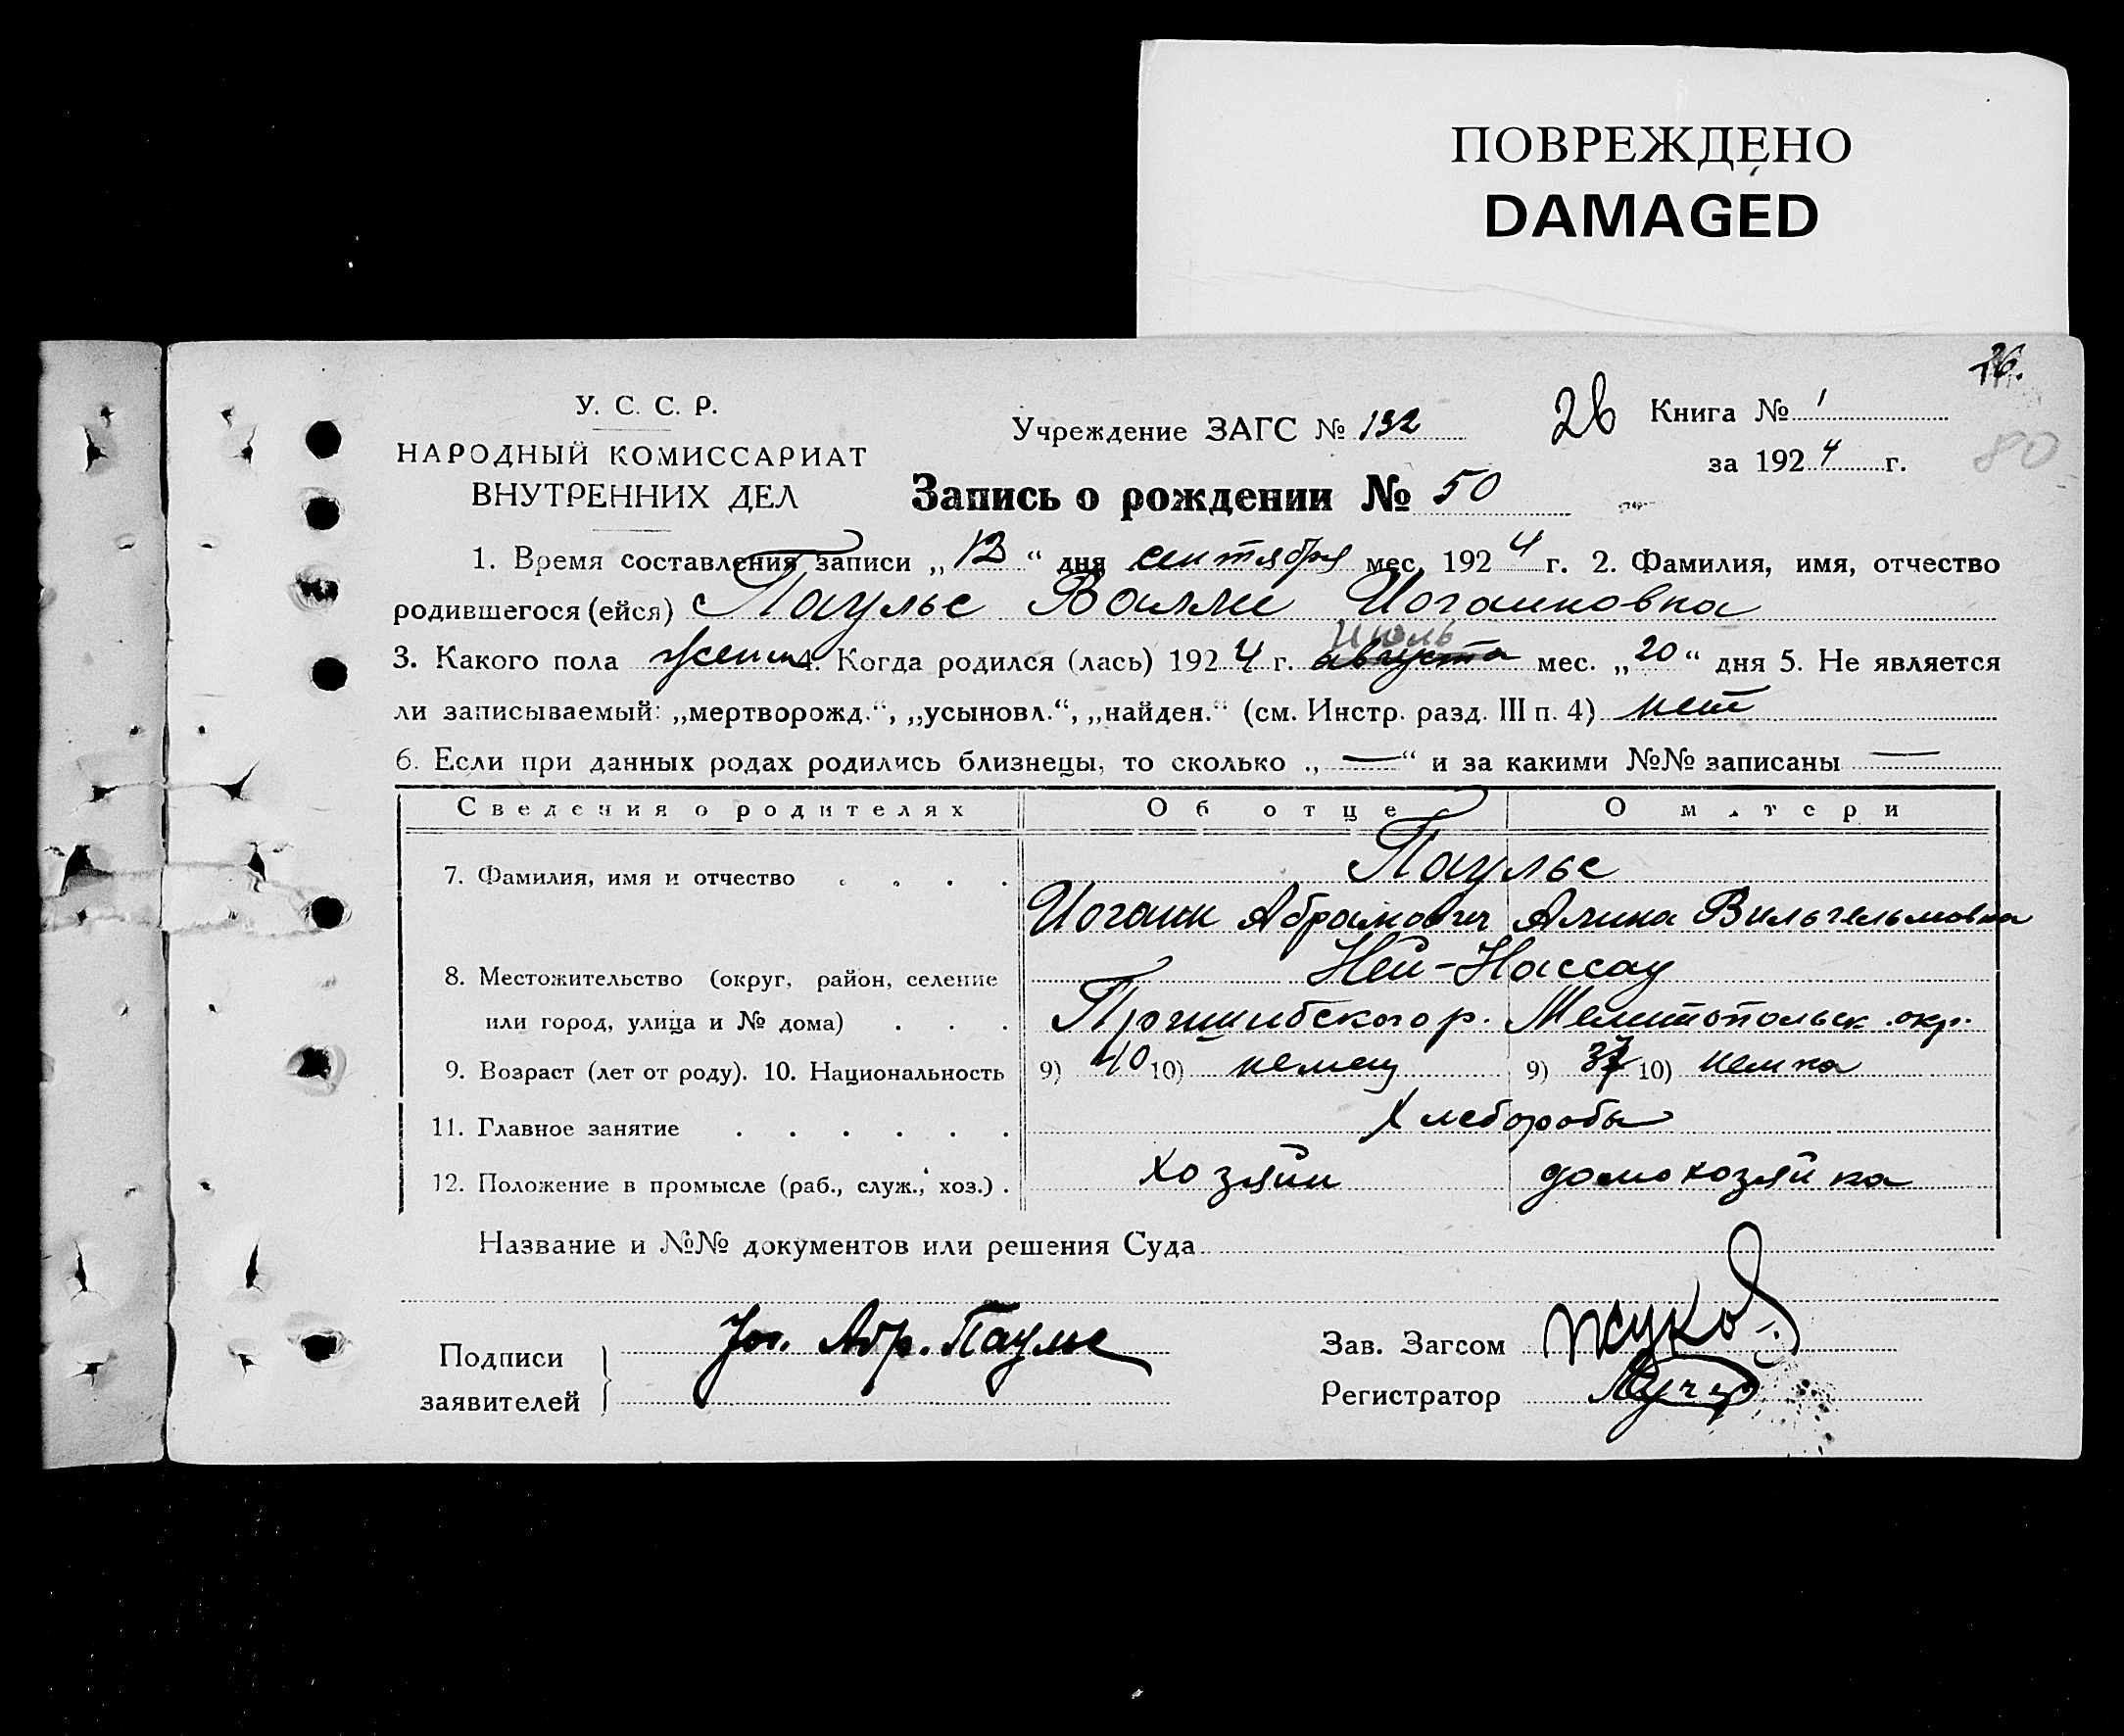 ПОВРЕЖДЕНО
DAMAGED
26.
У. С. С. Р.
НАРОДНЫЙ КОМИССАРИАТ
ВНУТРЕННИХ ДЕЛ
Учреждение ЗАГС № 132
26
Книга № 1
за 1924 г.
80
Запись о рождении № 50
1. Время составления записи „12“ дня сентября мес. 1924 г. 2. Фамилия, имя, отчество
родившегося (ейся) Паульс Валли Иоганновна
июль
3. Какого пола женск 4. Когда родился (лась) 1924 г. августа мес. „20“ дня 5. Не является
ли записываемый: „мертворожд.“, „усыновл.“, „найден.“ (см. Инстр. разд. III п. 4) нет
6. Если при данных родах родились близнецы, то сколько „—“ и за какими №№ записаны —
Сведения о родителях Об отце О матери
7. Фамилия, имя и отчество . . . . Паульс
Иоганн Абрамович Алина Вильгельмовна
8. Местожительство (округ, район, селение Ней-Нассау
или город, улица и № дома) . . . Пришибского р. Мелитопольск. окр.
9. Возраст (лет от роду). 10. Национальность 9) 40 10) немец 9) 37 10) немка
11. Главное занятие . . . . . . Хлеборобы
12. Положение в промысле (раб., служ., хоз.) . хозяин домохозяйка
Название и №№ документов или решения Суда
Подписи
заявителей
Јог. Абр. Паульс
Зав. Загсом Жуков
Регистратор